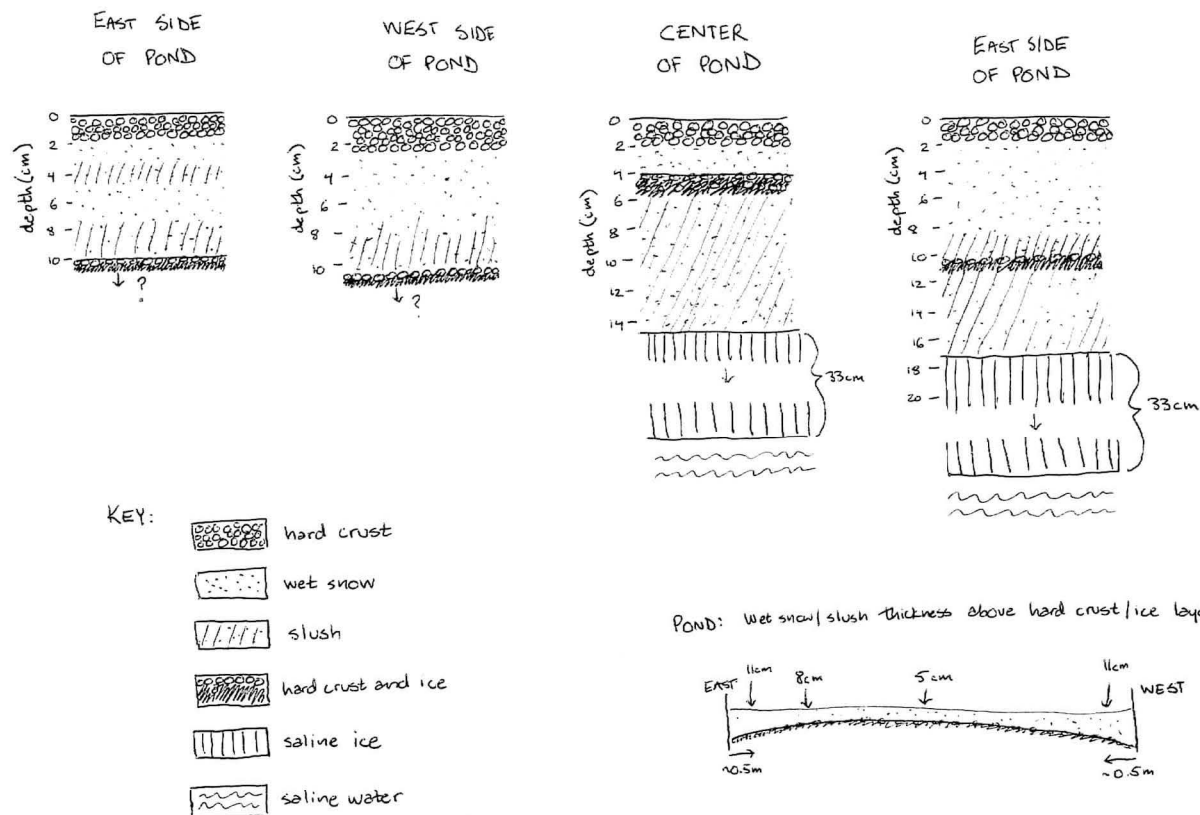 EAST SIDE
OF POND
depth (cm)
0
2
4
6
8
10
?
WEST SIDE
OF POND
depth (cm)
0
2
4
6
8
10
?
CENTER
OF POND
depth (cm)
0
2
4
6
8
10
12
14
33cm
EAST SIDE
OF POND
depth (cm)
0
2
4
6
8
10
12
14
16
18
20
33cm
KEY:
hard crust
wet snow
slush
hard crust and ice
saline ice
saline water
POND: Wet snow/slush thickness above hard crust/ice
EAST
11cm
8cm
5cm
11cm
WEST
~0.5m
~0.5m